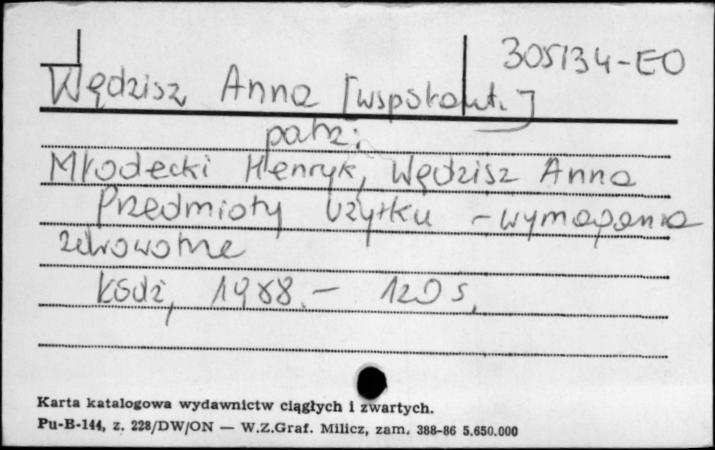 305134-EO
Wędzisz Anna [wspołaut.]
patrz:
Młodecki Henryk, Wędzisz Anna
Przedmioty użytku - wymagania
zdrowotne
Łódź, 1988. - 120 s.
Karta katalogowa wydawnictw ciągłych i zwartych.
Pu-B-144, z. 228/DW/ON — W.Z.Graf. Milicz, zam. 388-86 5.650.000